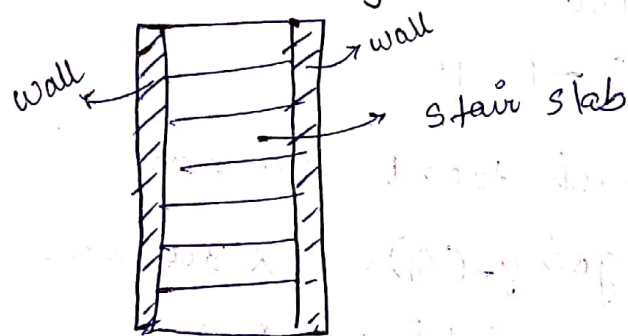 wall
wall
stair slab